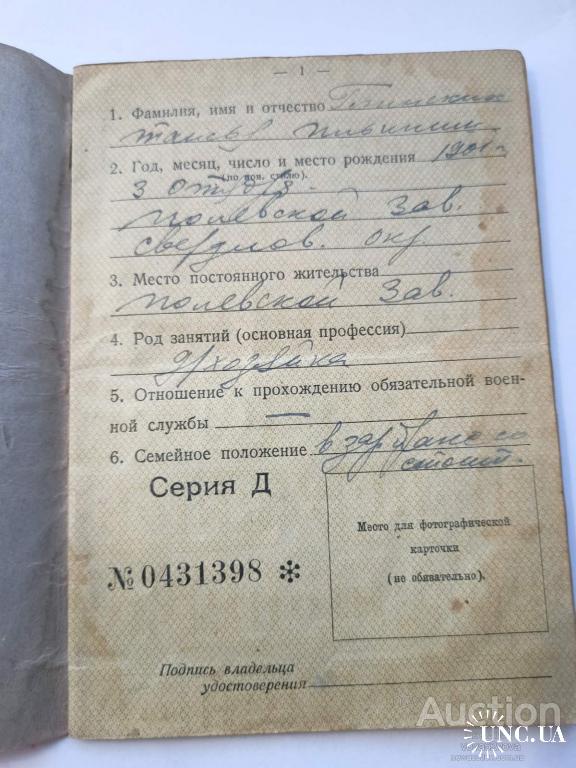 — 1 —
1. Фамилия, имя и отчество
2. Год, месяц, число и место рождения 1901 г.
(по нов. стилю).
3 октября
Полевской Зав.
Свердлов. окр.
3. Место постоянного жительства
Полевской Зав.
4. Род занятий (основная профессия)
д/хозяйка
5. Отношение к прохождению обязательной воен-
ной службы —
6. Семейное положение в зар. браке со
стоит.
Серия Д
Место для фотографической
карточки
(не обязательно).
№ 0431398 ✻
Подпись владельца
удостоверения
Auction
UNC.UA